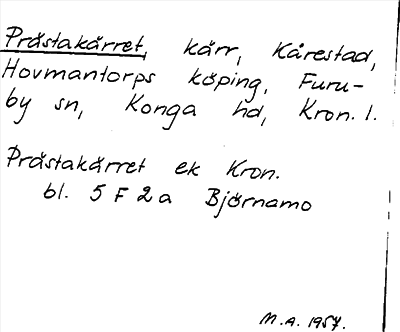 Prästakärret, kärr, Kårestad,
Hovmantorps köping, Furu-
by sn, Konga hd, Kron. l.
Prästakärret ek Kron.
bl. 5 F 2a Björnamo
M.A. 1957.